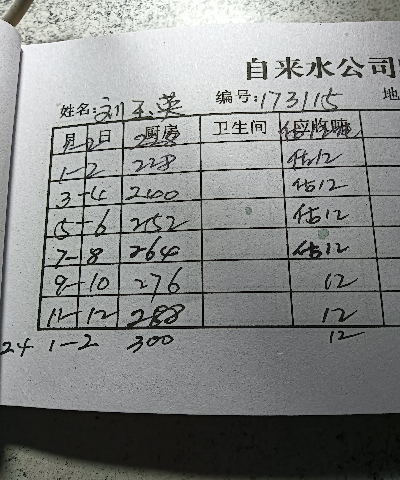 自来水公司
姓名:刘玉英 编号:173115 地
月 日 厨房 卫生间
1-2 228 估12
3-4 240 估12
5-6 252 估12
7-8 264 估12
9-10 276 12
11-12 288 12
24 1-2 300 12